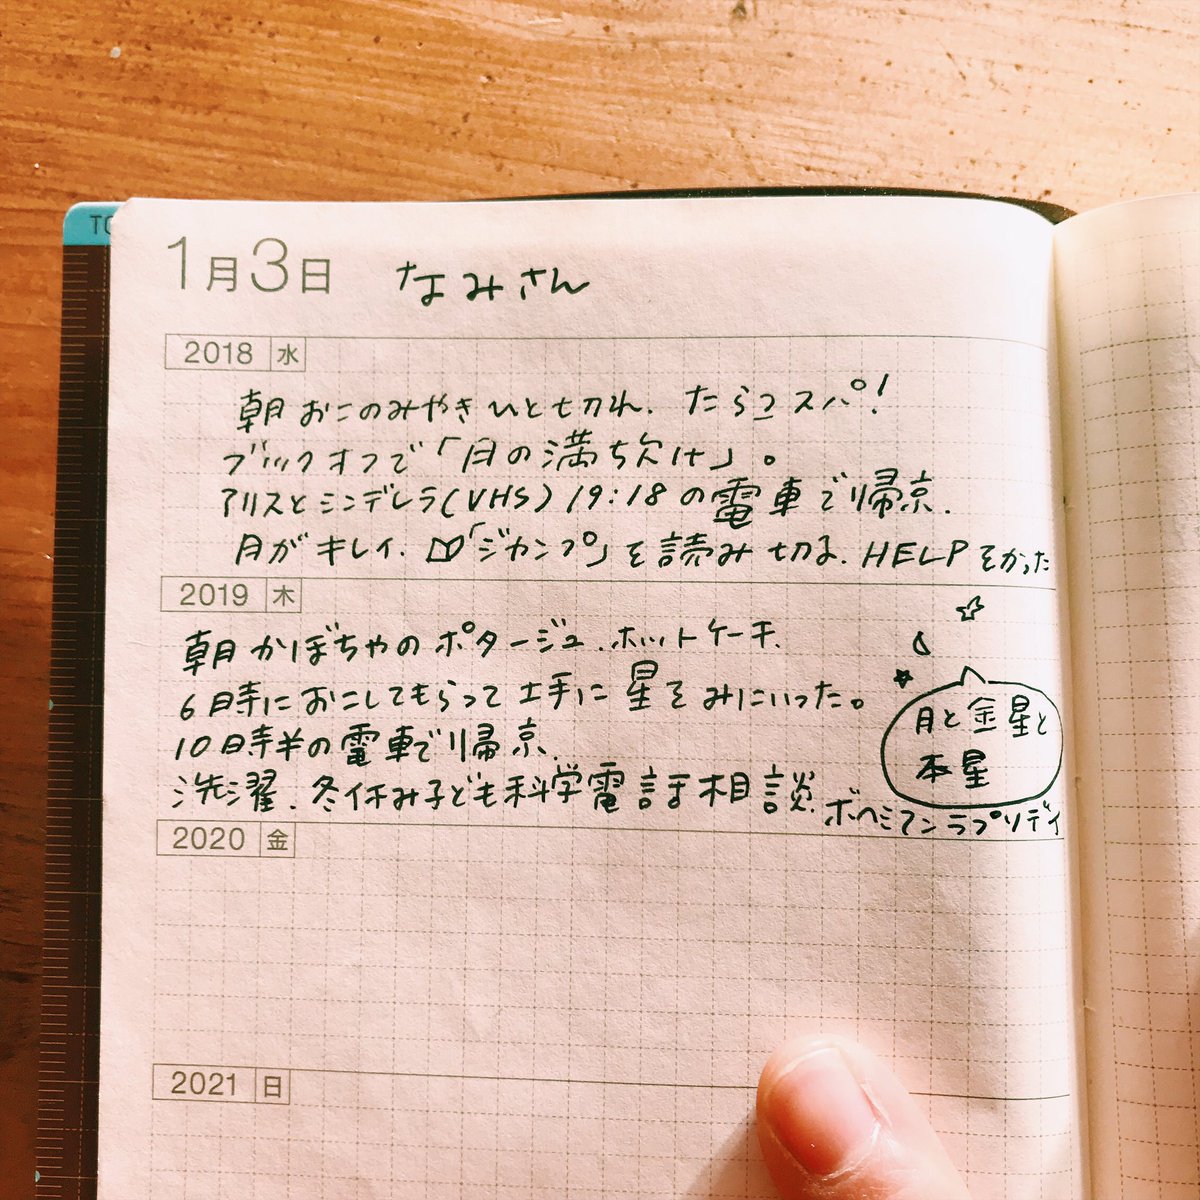 TO
1月3日 なみさん
2018 水
朝 おこのみやき ひと切れ. たらこスパ!
ブックオフで「月の満ち欠け」。
アリスとシンデレラ(VHS) 19:18の電車で帰京.
月がキレイ. 「ジャンプ」を読み切る. HELPをかった
2019 木
朝 かぼちゃのポタージュ. ホットケーキ.
6時におこしてもらって土手に星をみにいった。
10時半の電車で帰京.
洗濯. 冬休み子ども科学電話相談.
ボヘミアンラプソディ
月と金星と
木星
2020 金
2021 日